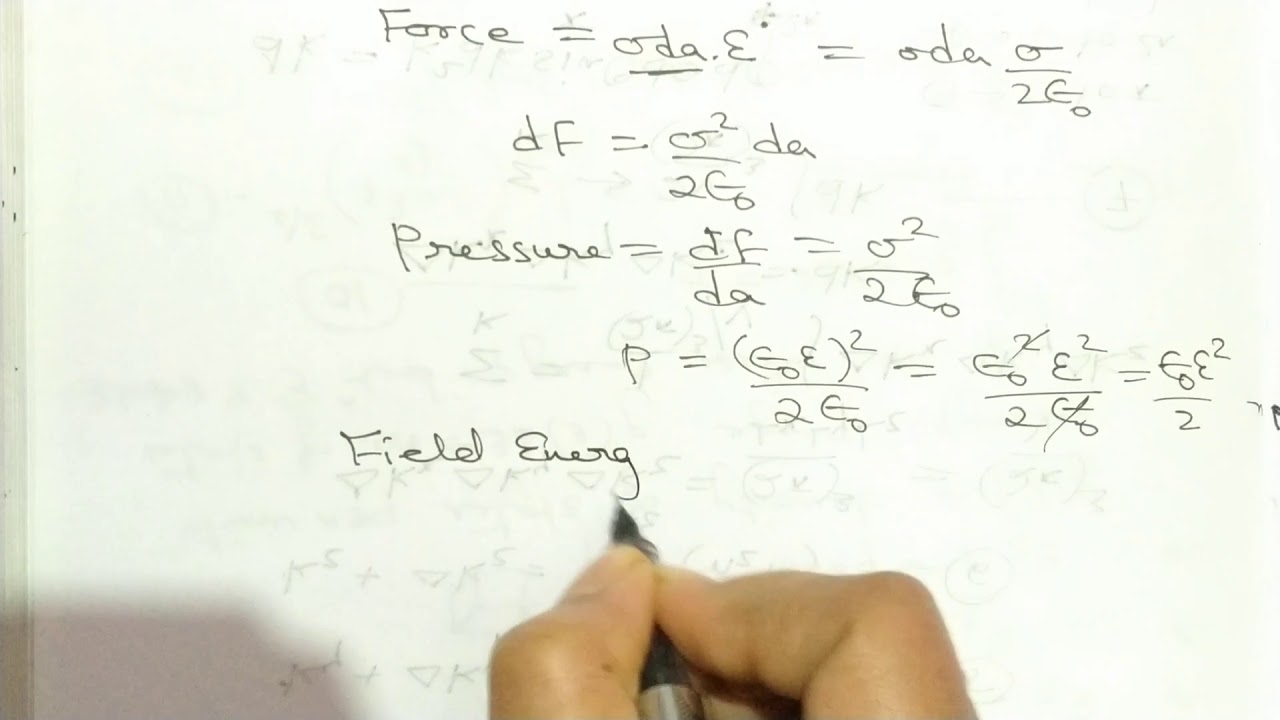 Force = σda.ε = σda σ/2ϵ₀
dF = σ²/2ϵ₀ da
Pressure = df/da = σ²/2ϵ₀
P = (ϵ₀ε)²/2ϵ₀ = ϵ₀²ε²/2ϵ₀ = ϵ₀ε²/2
Field Energ